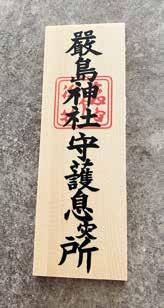 嚴島神社守護息灾所